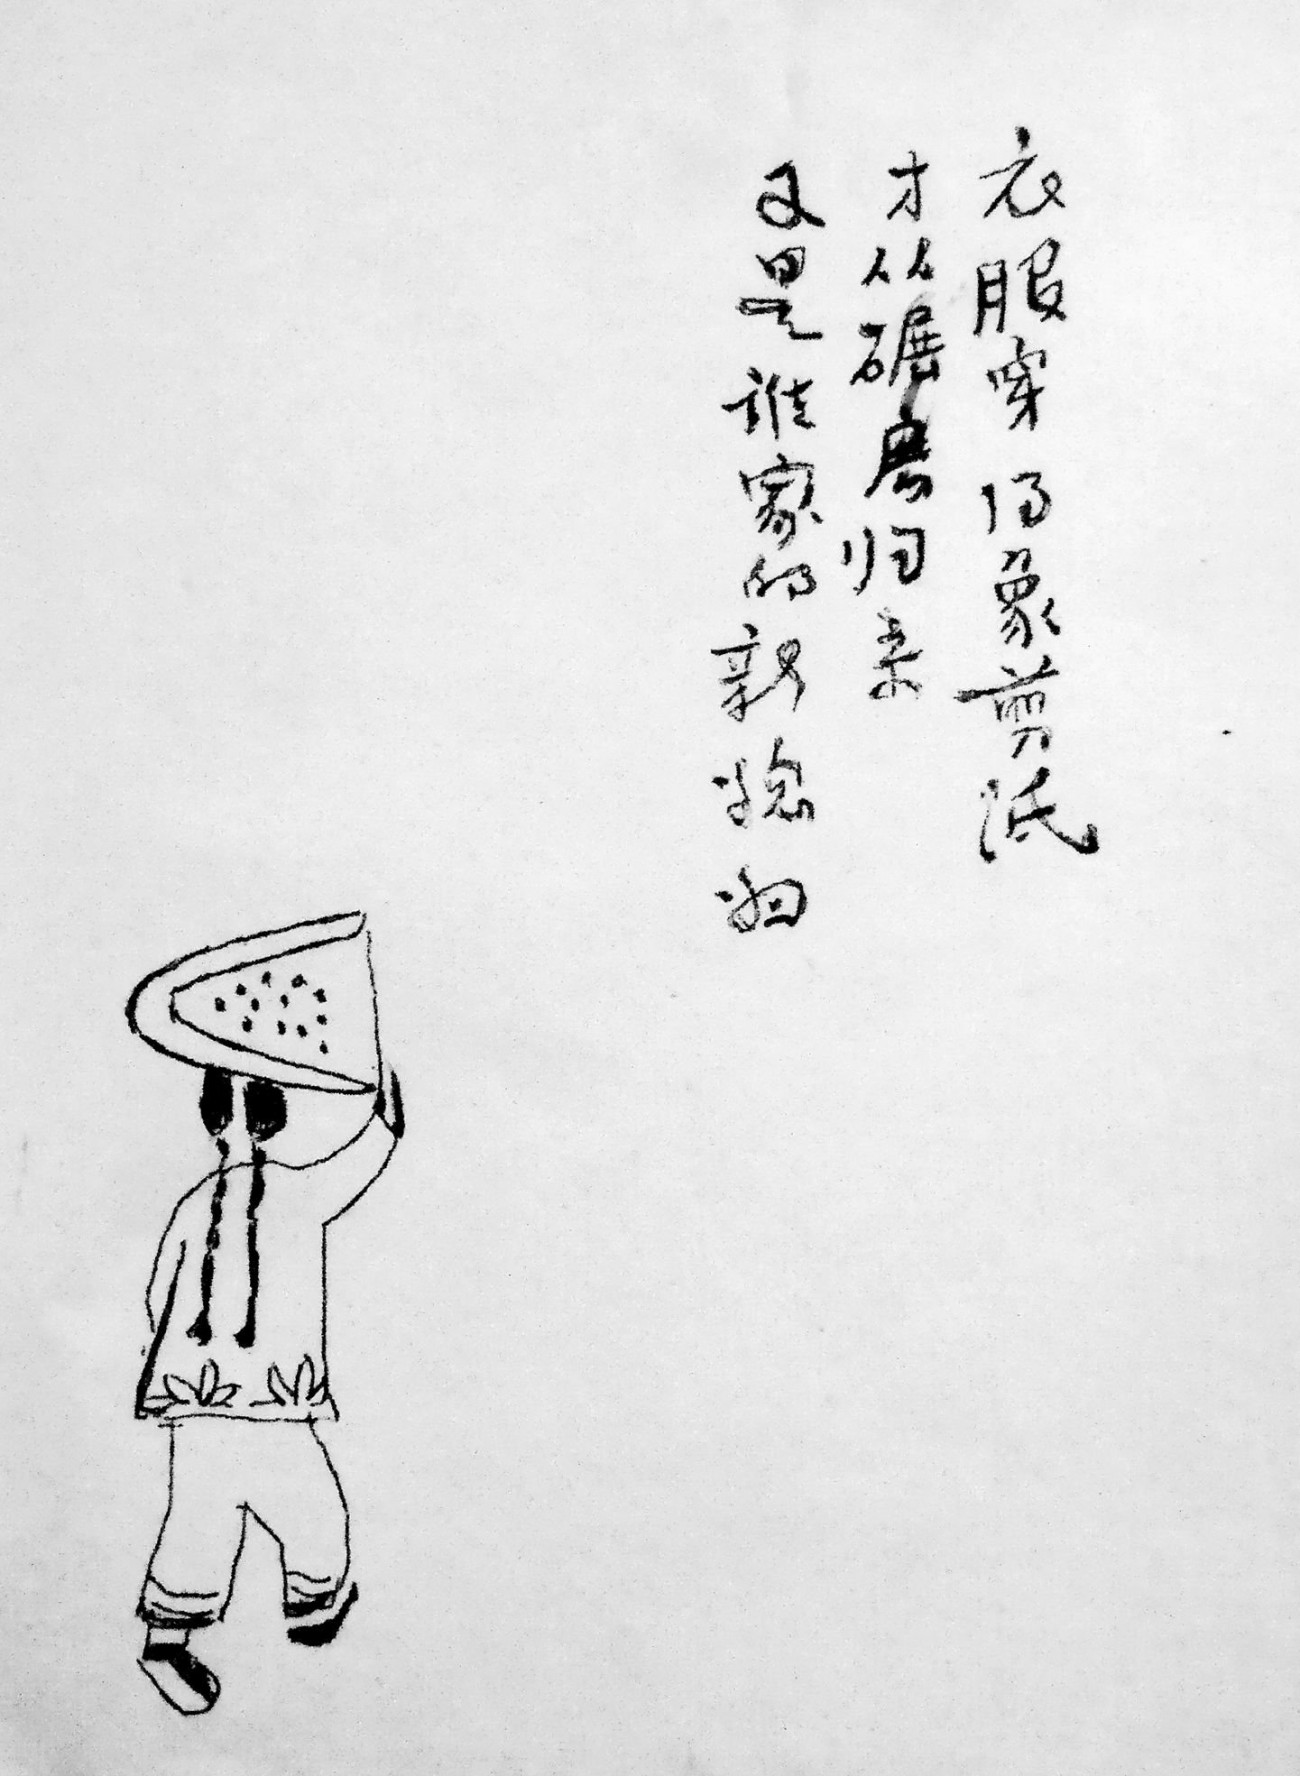 衣服穿得象剪纸
才从碾房归来
又是谁家的新媳妇